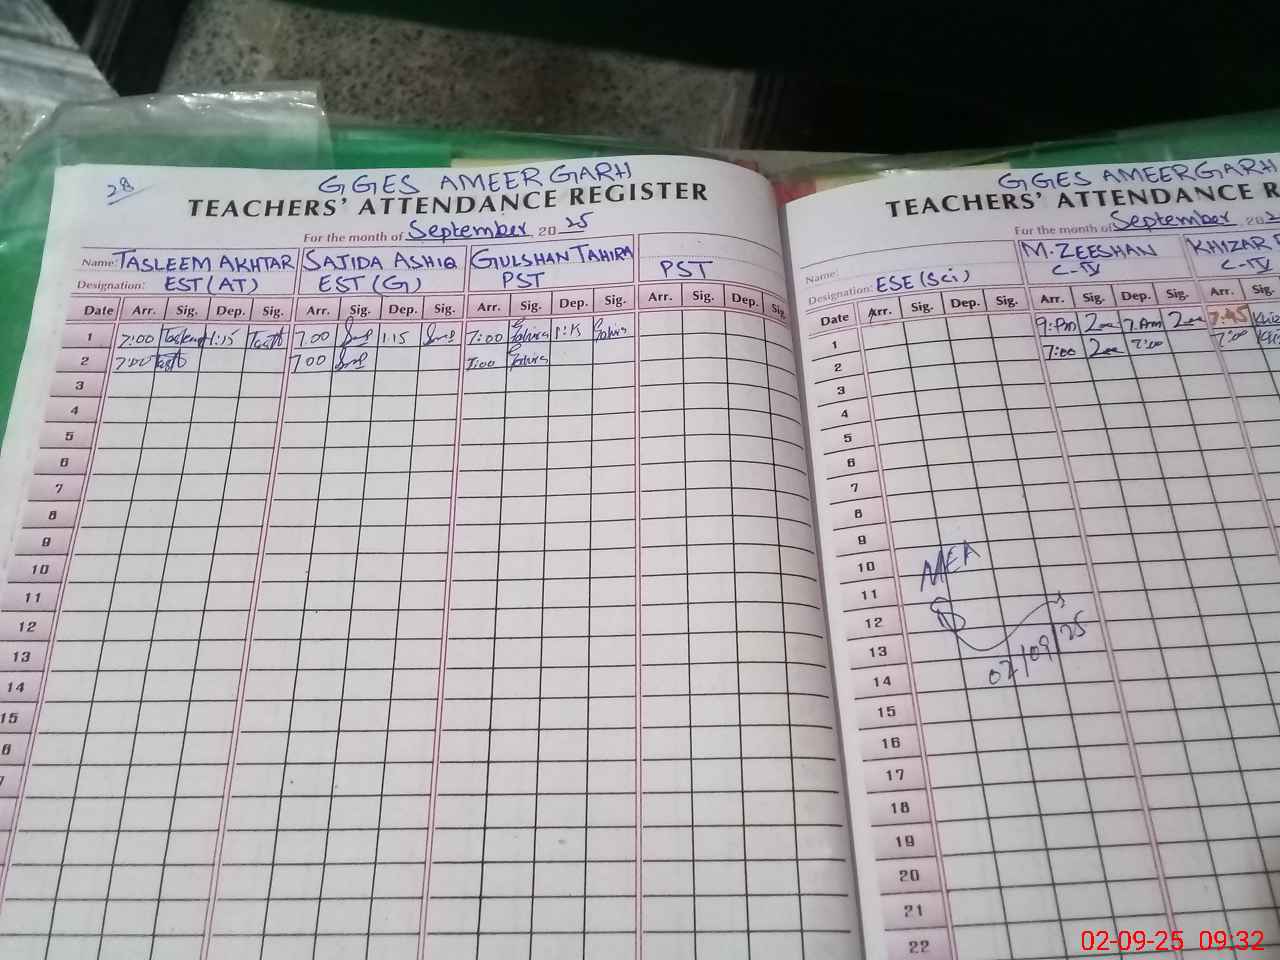 28
GGES AMEER GARH
TEACHERS' ATTENDANCE REGISTER
For the month of September 2025
Name: TASLEEM AKHTAR SAJIDA ASHIQ GULSHAN TAHIRA
Designation: EST (AT) EST (G) PST PST
Date Arr. Sig. Dep. Sig. Arr. Sig. Dep. Sig. Arr. Sig. Dep. Sig. Arr. Sig. Dep. Sig.
1 7:00 1:15 7:00 1:15 7:00 1:15
2 7:00 7:00 7:00
3
4
5
6
7
8
9
10
11
12
13
14
15
6
7
GGES AMEER GARH
TEACHERS' ATTENDANCE R
For the month of September 202
Name: M. ZEESHAN KHIZAR
Designation: ESE (Sci) C-IV C-IV
Date Arr. Sig. Dep. Sig. Arr. Sig. Dep. Sig. Arr. Sig.
1 9:Pm 7:Am 7:45
2 7:00 7:00 7:00
3
4
5
6
7
8
9
10
11
12
13
14
15
16
17
18
19
20
21
22
MEA
02/09/25
02-09-25 09:32